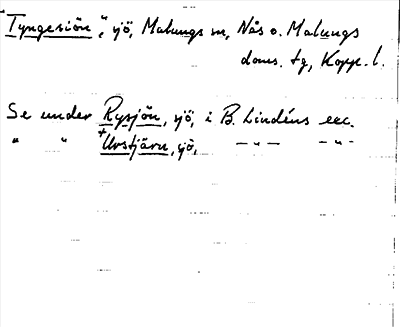 "Tyngesjön", sjö, Malungs sn, Nås o. Malungs
doms. tg, Kopp. l.
Se under Rysjön, sjö, i B. Lindéns exc.
" " +Urstjärn, sjö, — " — — " —